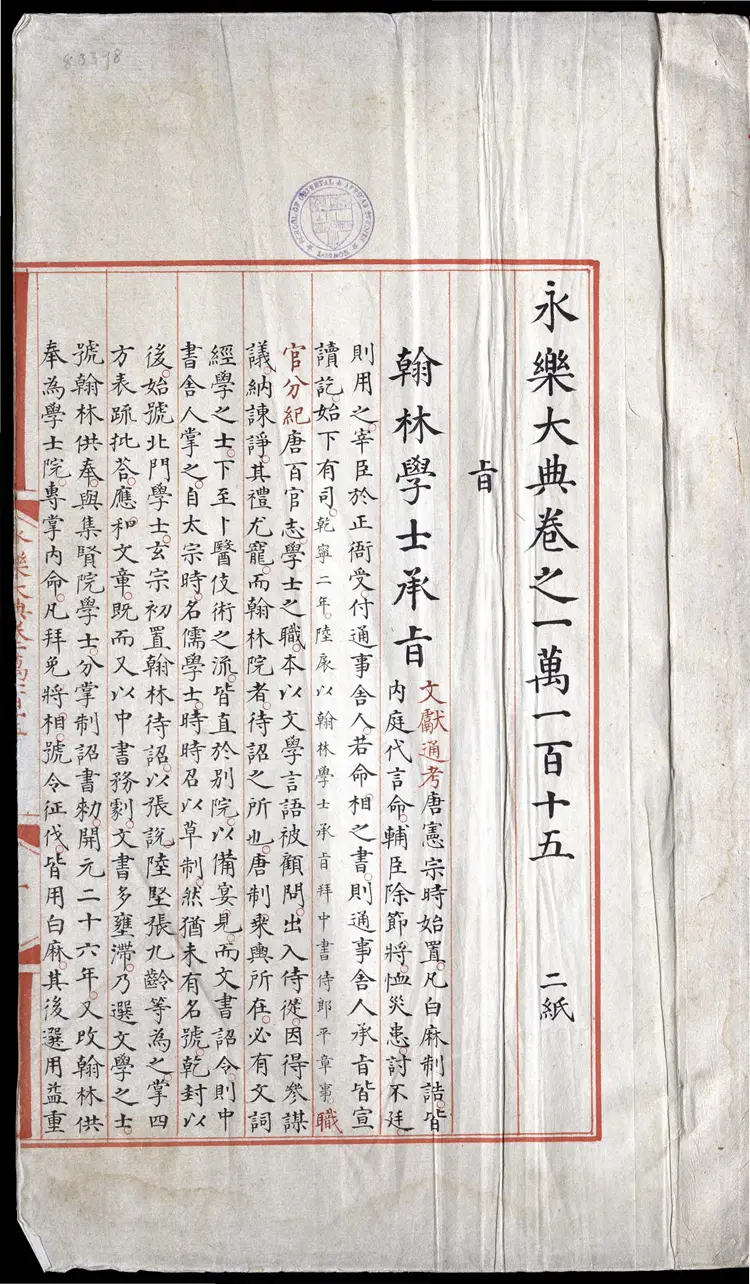 83398
SCHOOL OF ORIENTAL & AFRICAN STUDIES LONDON
永樂大典卷之一萬一百十五 二紙
㫖
翰林學士承㫖
文獻通考唐憲宗時始置。凡白麻制誥。皆
内庭代言。命輔臣除節將。恤災患。討不廷。
則用之。宰臣於正衙受。付通事舍人。若命相之書。則通事舍人承㫖。皆宣
讀訖。始下有司。乾寧二年。陸扆以翰林學士承㫖拜中書侍郎平章事。職
官分紀唐百官志學士之職。本以文學言語被顧問。出入侍從。因得參謀
議。納諫諍。其禮尤寵。而翰林院者。待詔之所也。唐制乘輿所在。必有文詞
經學之士。下至卜醫伎術之流。皆直於別院。以備宴見。而文書詔令。則中
書舍人掌之。自太宗時。名儒學士。時時召以草制。然猶未有名號。乾封以
後。始號北門學士。玄宗初置翰林待詔。以張說陸堅張九齡等為之。掌四
方表疏批荅。應和文章。既而又以中書務劇。文書多壅滯。乃選文學之士。
號翰林供奉。與集賢院學士。分掌制詔書勅。開元二十六年。又改翰林供
奉為學士院。專掌内命。凡拜免將相。號令征伐。皆用白麻。其後選用益重